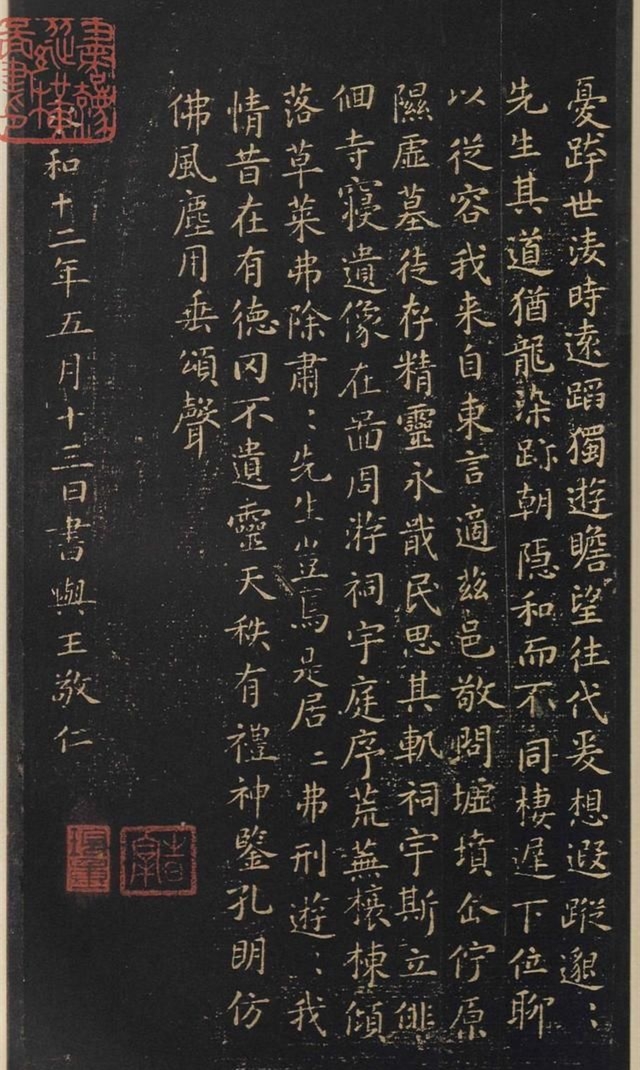 憂跨世淩時遠蹈獨遊瞻望往代爰想遐蹤邈：
先生其道猶龍染跡朝隱和而不同棲遲下位聊
以從容我來自東言適茲邑敬問墟墳企佇原
隰虛墓徒存精靈永戢民思其軌祠宇斯立俳
佪寺寢遺像在啚周游祠宇庭序荒蕪榱棟傾
落草萊弗除肅：先生豈焉是居：弗刑遊：我
情昔在有德罔不遺靈天秩有禮神鑒孔明仿
佛風塵用垂頌聲
和十二年五月十三日書與王敬仁